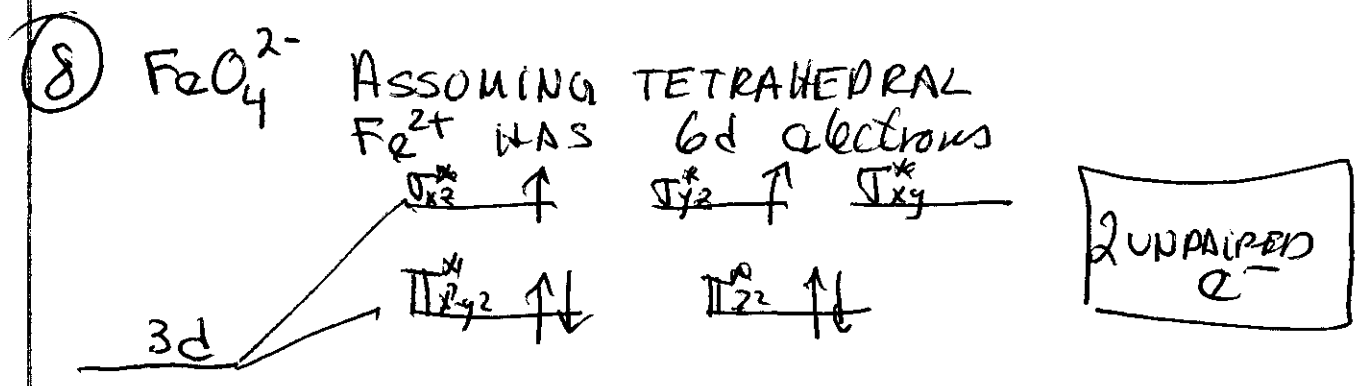 8 FeO₄²⁻ ASSUMING TETRAHEDRAL
Fe²⁺ HAS 6d electrons
σ*xz ↑ σ*yz ↑ σ*xy
π*x²-y² ↑↓ π*z² ↑↓
3d
2 UNPAIRED
e⁻